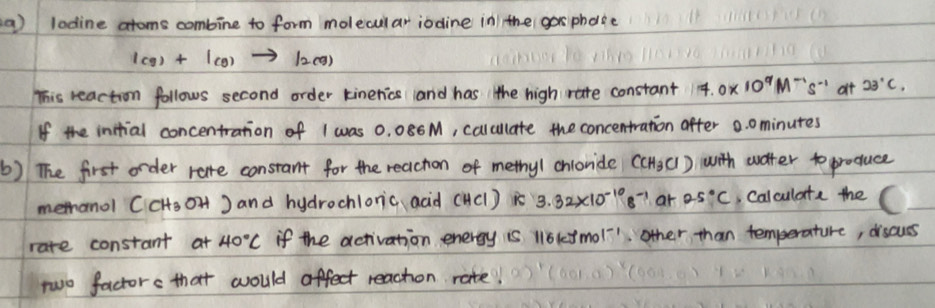 a) Iodine atoms combine to form molecular iodine in the gas phase
I(g) + I(g) → I2(g)
This reaction follows second order kinetics and has the high rate constant 7.0×10⁹M⁻¹s⁻¹ at 23°C.
If the initial concentration of I was 0.086M, calculate the concentration after 2.0minutes
b) The first order rate constant for the reaction of methyl chloride (CH3Cl) with water to produce
methanol (CH3OH) and hydrochloric acid (HCl) is 3.32×10⁻¹⁰s⁻¹ at 25°C. Calculate the
rate constant at 40°C if the activation energy is 116kJmol⁻¹. Other than temperature, discuss
two factors that would affect reaction rate.